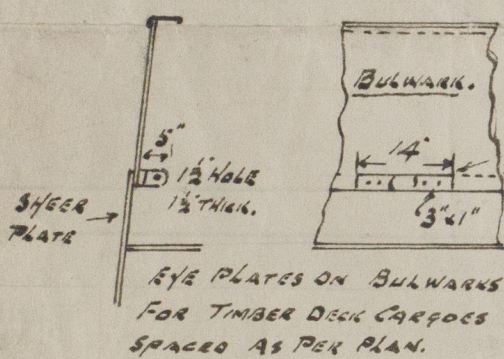 5"
1½" HOLE
1½" THICK.
SHEER
PLATE
BULWARK.
14"
3"x1"
EYE PLATES ON BULWARKS
FOR TIMBER DECK CARGOES
SPACED AS PER PLAN.